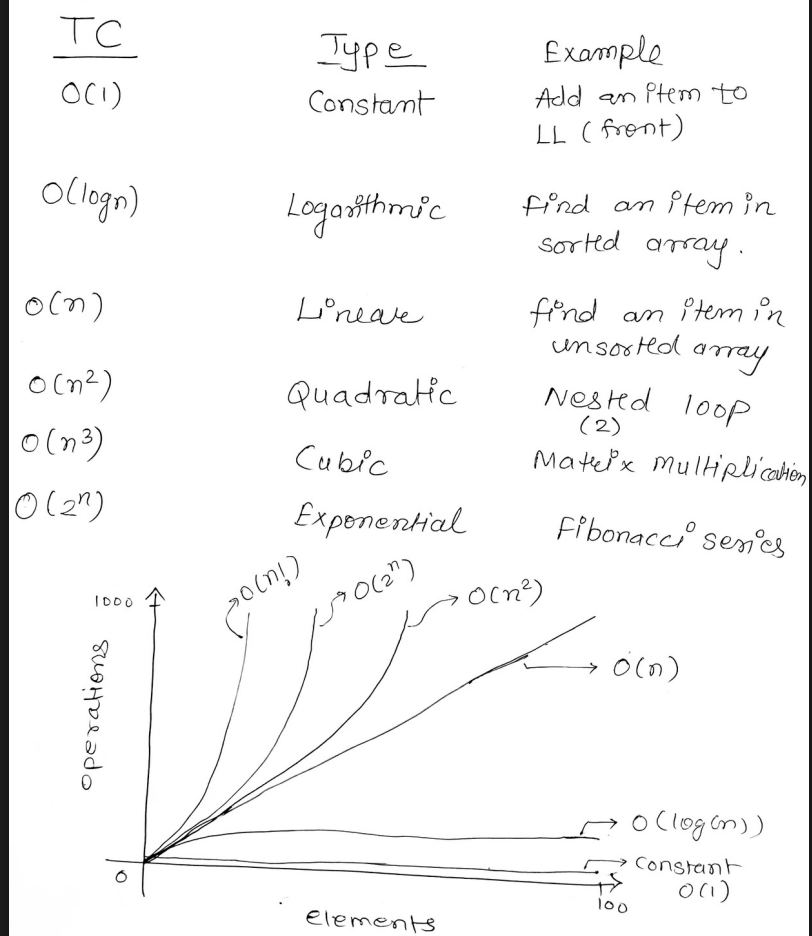 TC Type Example
O(1) Constant Add an item to
LL (front)
O(logn) Logarithmic find an item in
sorted array.
O(n) Linear find an item in
unsorted array
O(n²) Quadratic Nested loop
(2)
O(n³) Cubic Matrix multiplication
O(2ⁿ) Exponential Fibonacci series
1000 O(n!) O(2ⁿ) O(n²)
operations
O(n)
O(log(n))
constant
O(1)
0
100
elements